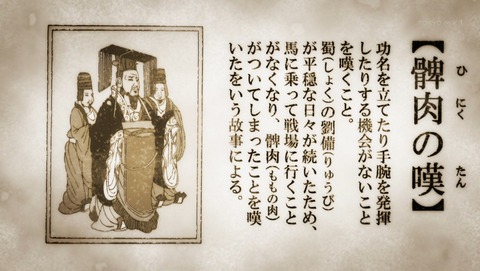 【髀肉の嘆】
ひにくたん
功名を立てたり手腕を発揮
したりする機会がないこと
を嘆くこと。
蜀(しょく)の劉備(りゅうび)
が平穏な日々が続いたため、
馬に乗って戦場に行くこと
がなくなり、髀肉(ももの肉)
がついてしまったことを嘆
いたをいう故事による。